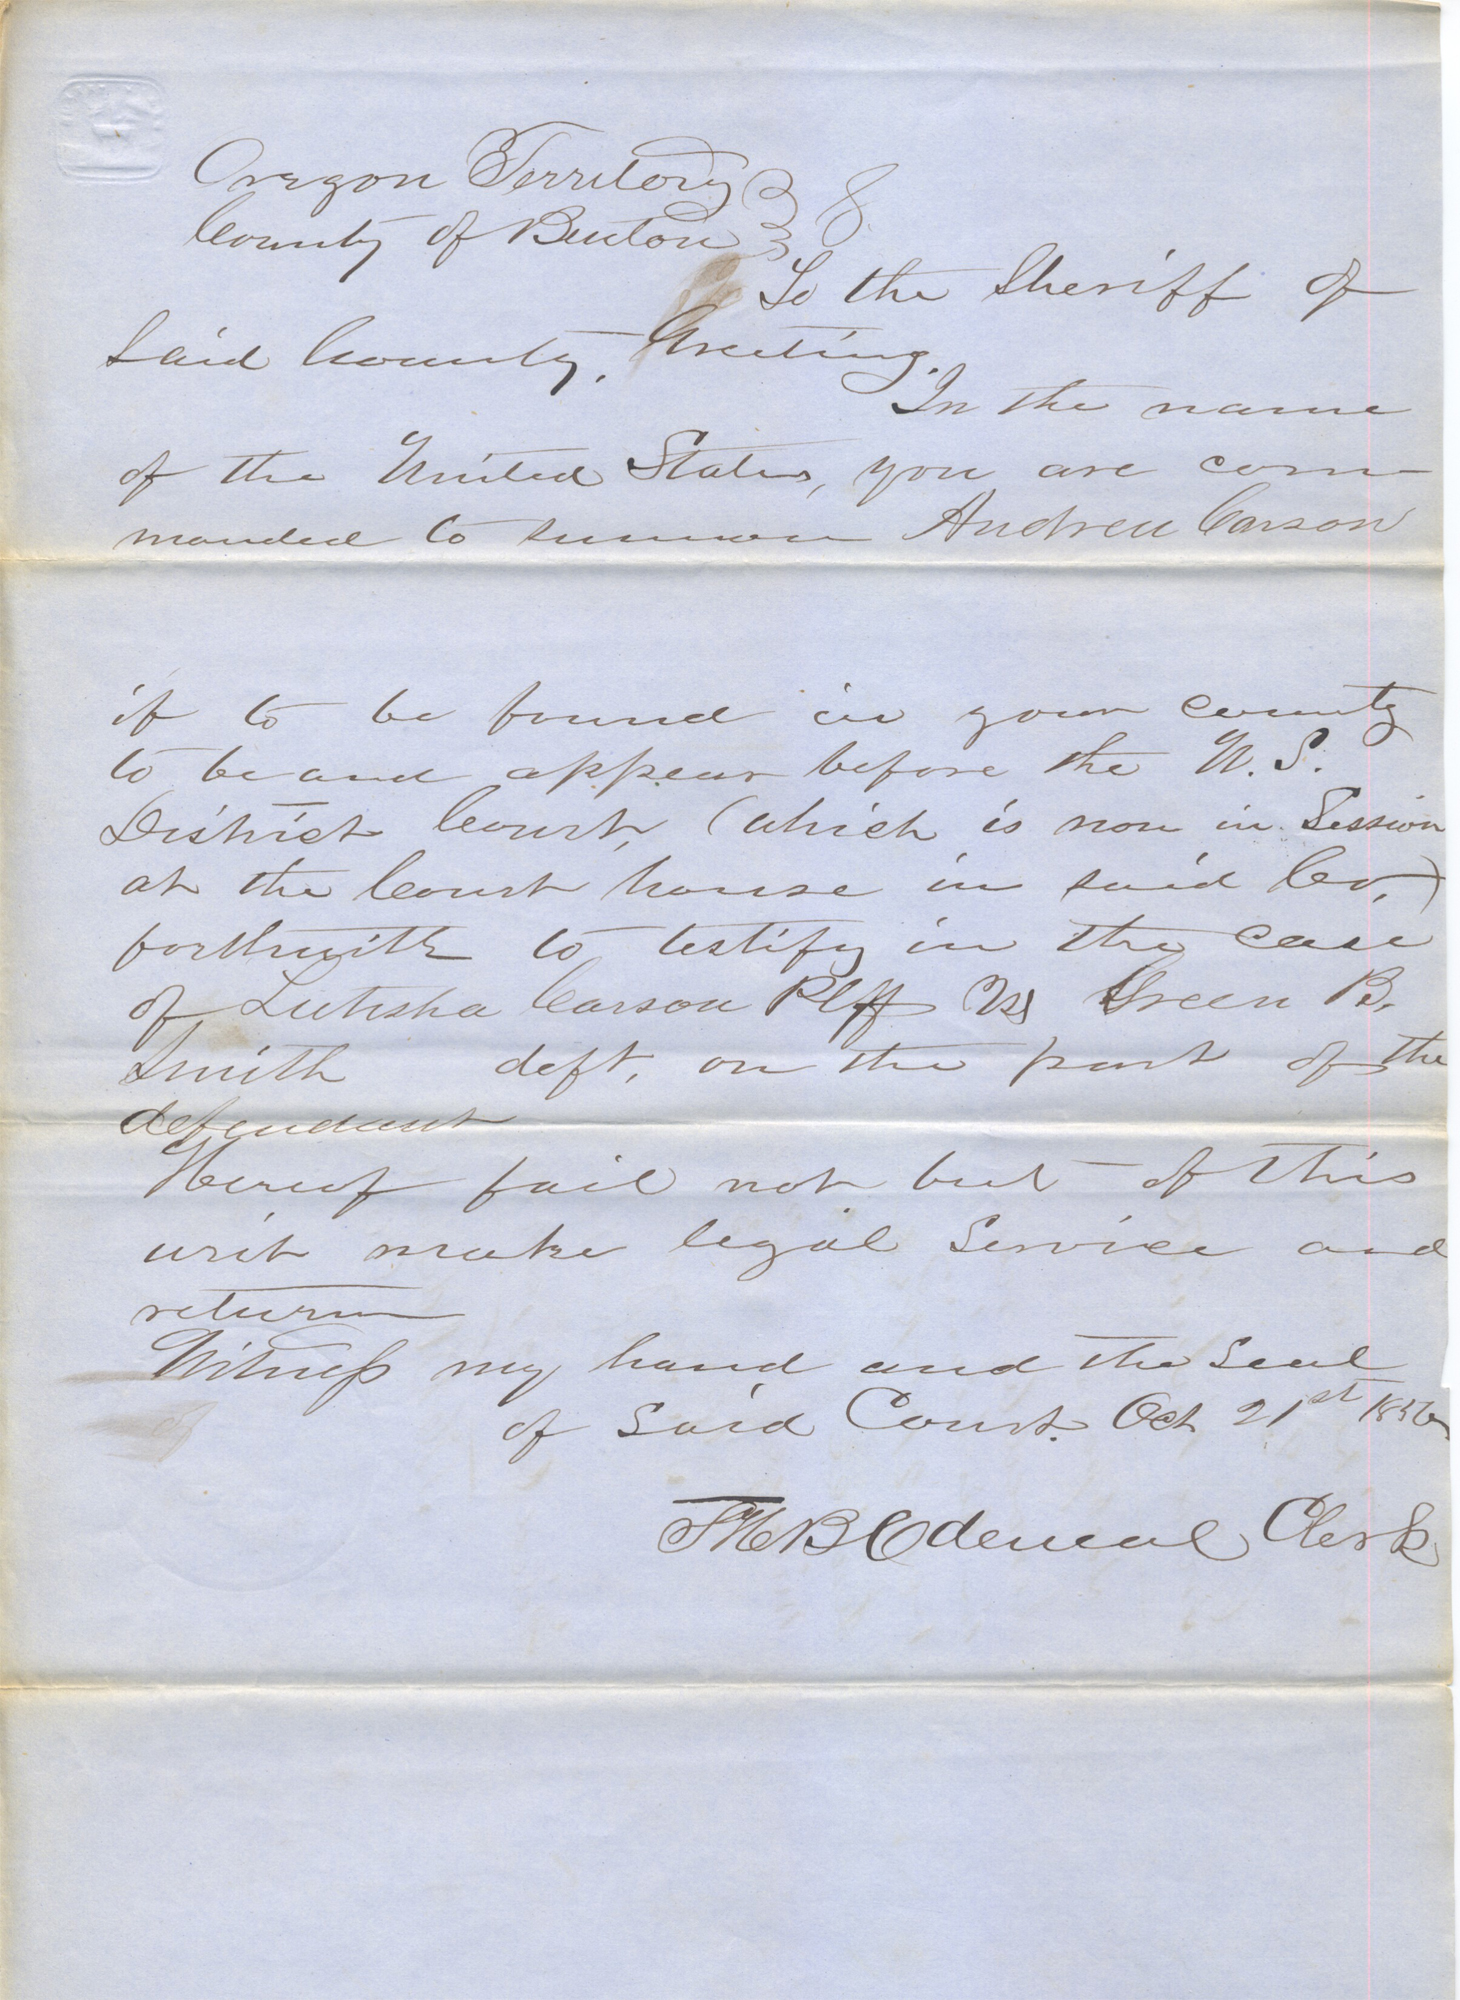 Oregon Territory
County of Benton
To the Sheriff of
Said County, Greeting.
In the name
of the United States, you are com
manded to summon Andrew Carson
if to be found in your county
to be and appear before the U. S.
District Court, (which is now in Session
at the Court house in said Co,)
forthwith to testify in the case
of Lutisha Carson Plff Vs Green B.
Smith deft, on the part of the
defendant
Hereof fail not but of this
writ make legal Service and
return
Witness my hand and the Seal
of Said Court. Oct 21st 1856
Odeneal Clerk